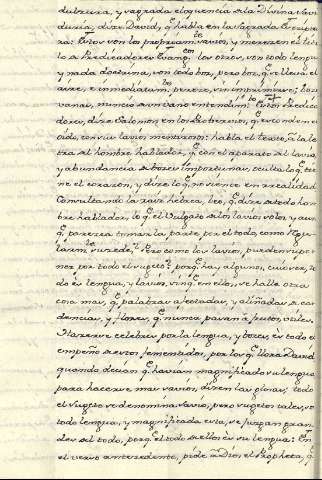 dulzura, y sagrada eloquencia de la Divina Savi
duria, dize David, q.e habla en la Sagrada Escriptu
ra: Estos son los propriam.te savios, y merecen el titu
lo de Predicadores Evang.cos los otros, son todo lengua
y nada doctrina, son todo voz, pero voz, q.e se lleva el
aire, e inmediatam.te perece, sin imprimirse;
vanas, nunca avivan el entendim.to Estos Predica
dores, dize Salomon en los Proberbios, q.e esconden el
odio, con sus lavios mentirosos: habla el texto, a la le
tra del hombre hablador, q.e con el aparato de lavios,
y abundancia de vozes importunas, oculta lo q.e tie
ne el corazon, y dize lo q.e no siente en realidad
Consultando la raiz hebrea, leo, q.e dize a todo hom
bre hablador, lo q.e el Vulgato de los lavios solos, y aun
q.e parezca tomar la parte por el todo, como Regu
larm.te sucede, Pero como los lavios, pueden supo
ner por todo el sugeto? porq.e hay algunos, cuio ser, to
do es lengua, y lavios, sin q.e en ellos, se halle otra
cosa mas, q.e palabras afectadas, y aliñadas de ca
dencias, y flores, q.e nunca pasan a frutos, utiles.
Hazerse celebres por la lengua, y bozes, es todo el
empeño de estos fementidos, por los q.e llora David
quando decian q.e havian magnificado su lengua
para hacerse, mas savios, dizen las glosas; todo
el sugeto se denomina savio, pero sugetos tales, son
todo lengua, y magnificada esta, se juzgan gran
des del todo, porq.e el todo de ellos es su lengua: En
el verso antecedente, pide a Dios, el Propheta, q.e